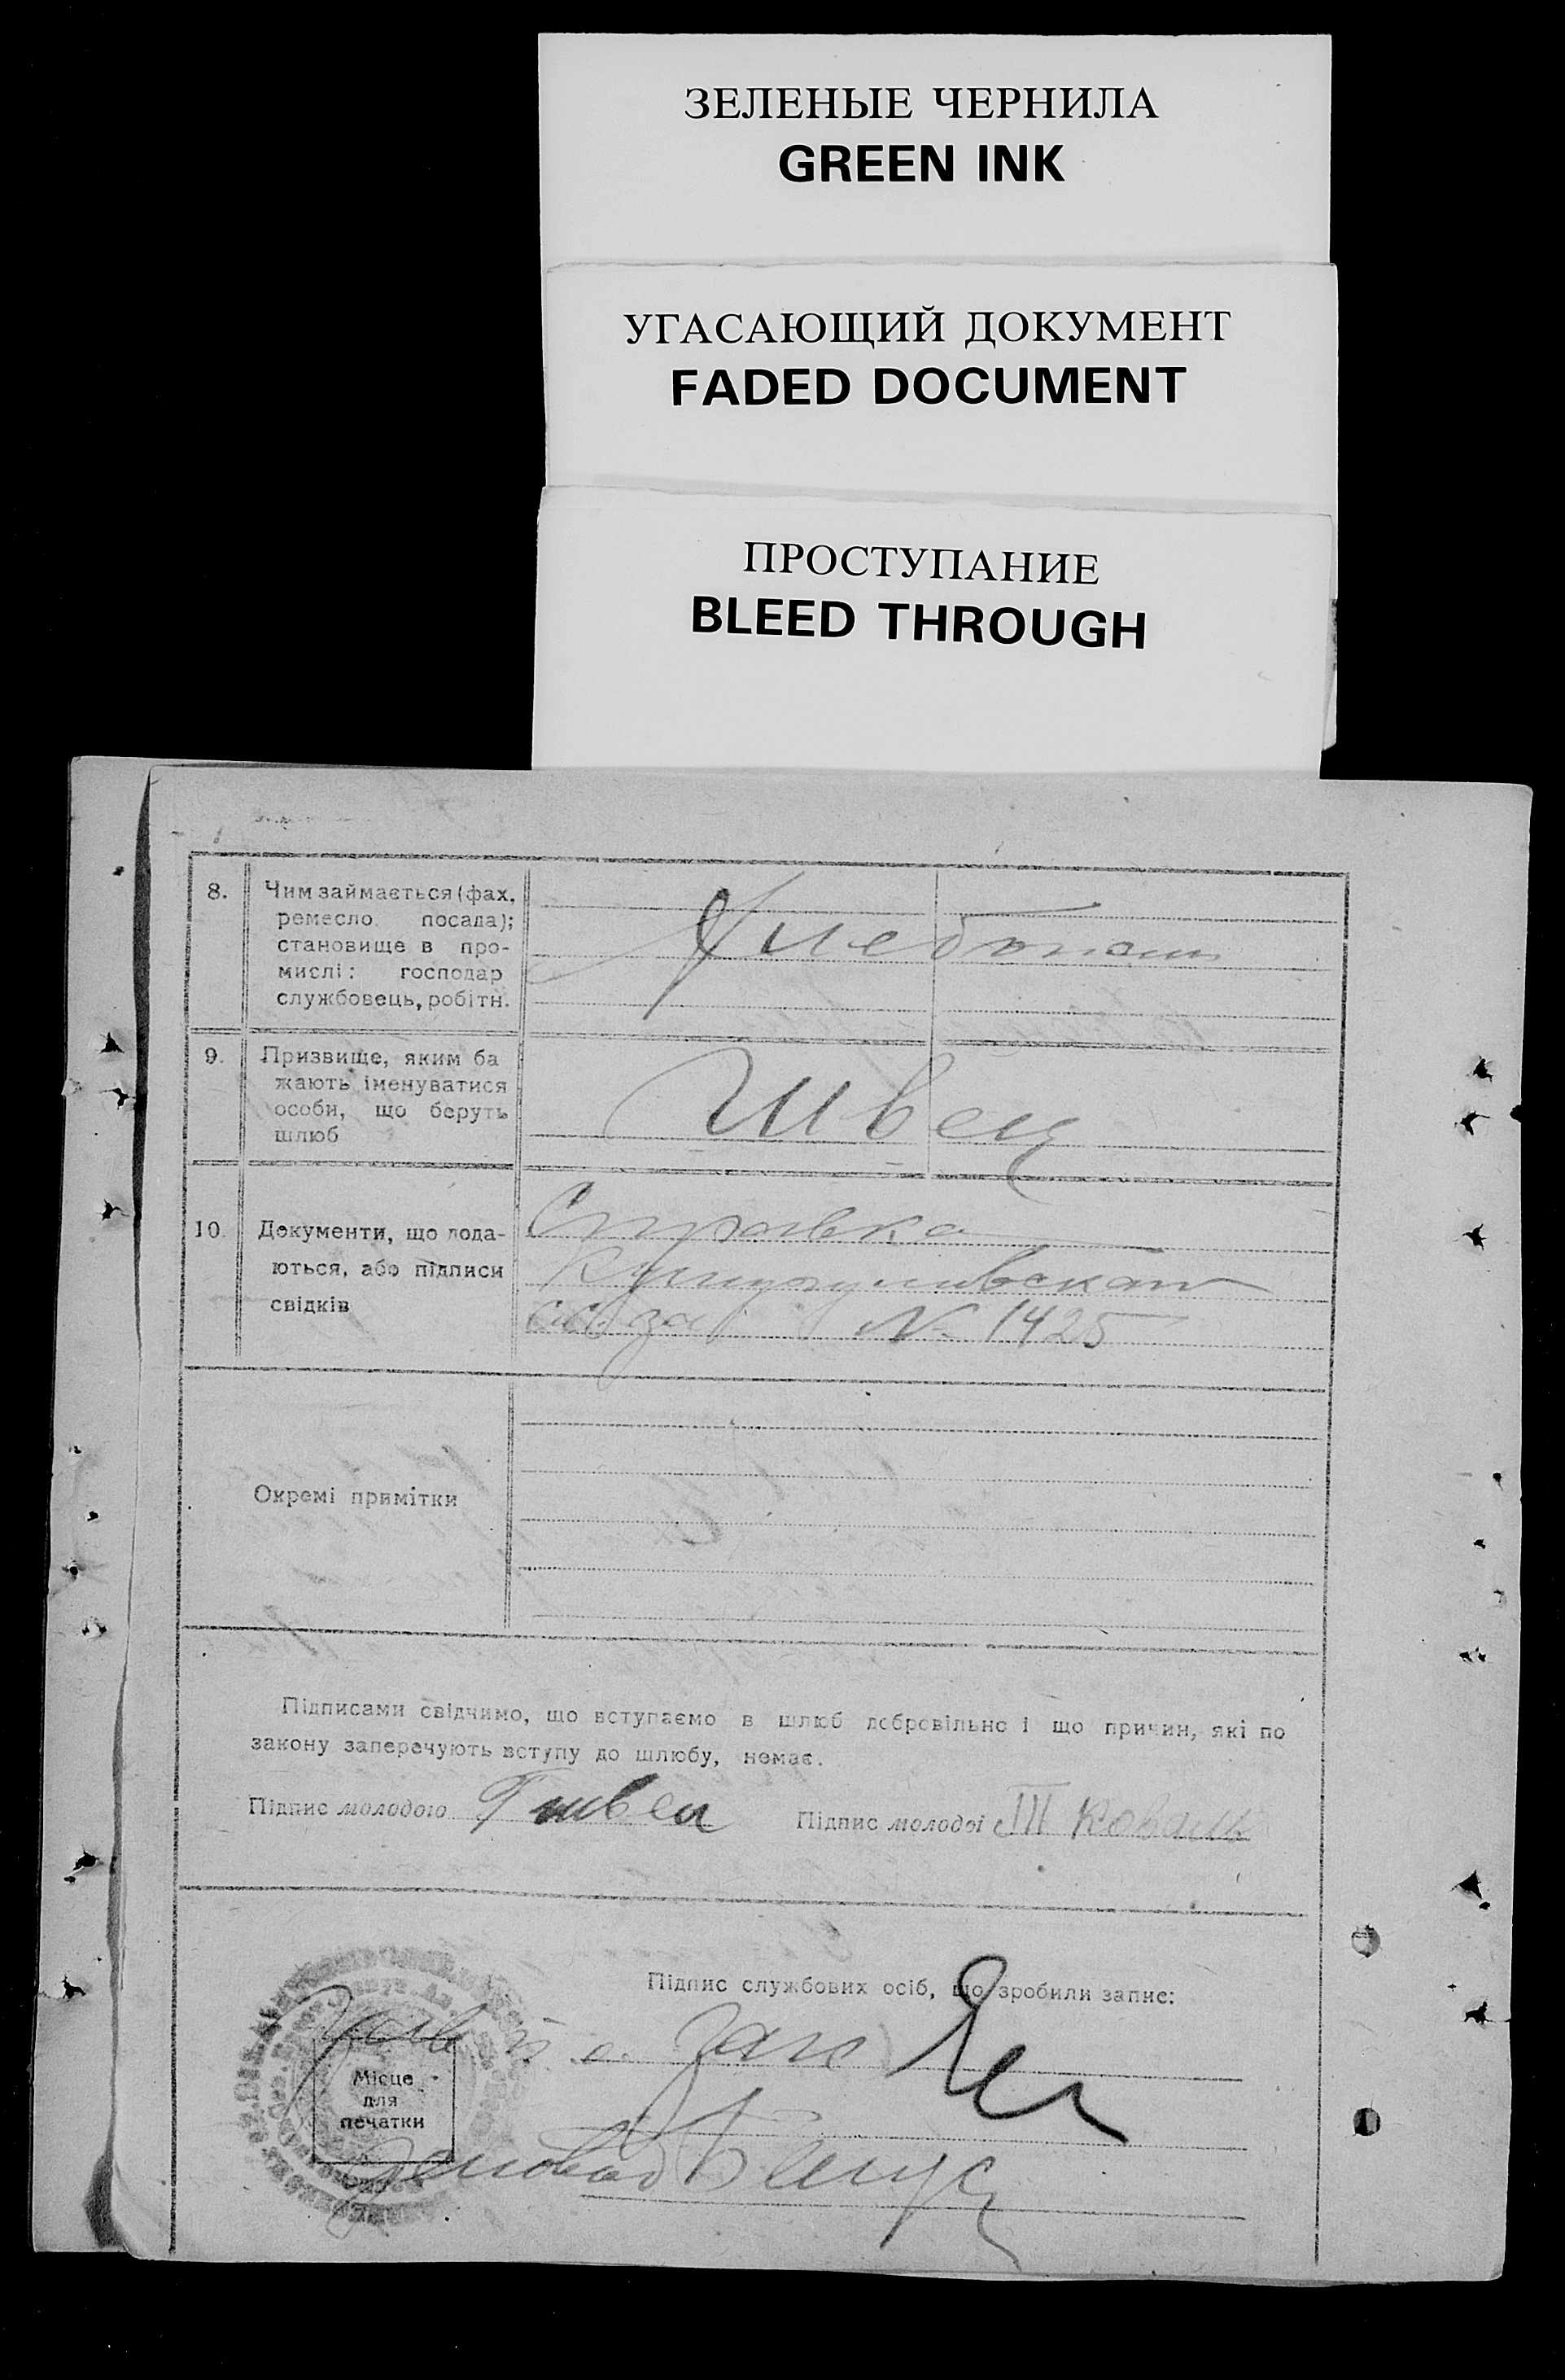 ЗЕЛЕНЫЕ ЧЕРНИЛА
GREEN INK
УГАСАЮЩИЙ ДОКУМЕНТ
FADED DOCUMENT
ПРОСТУПАНИЕ
BLEED THROUGH
8.
Чим займається (фах,
ремесло, посада);
становище в про-
мислі: господар
службовець, робітн.
Хлебопаш
9.
Призвище, яким ба
жають іменуватися
особи, що беруть
шлюб
Швец
10.
Документи, що пода-
ються, або підписи
свідків
Справка
№ 1425
Окремі примітки
Підписами свідчимо, що вступаємо в шлюб добровільно і що причин, які по
закону заперечують вступу до шлюбу, немає.
Підпис молодого Г Швец
Підпис молодої Ш Коваль
Підпис службових осіб, що зробили запис:
Місце
для
печатки